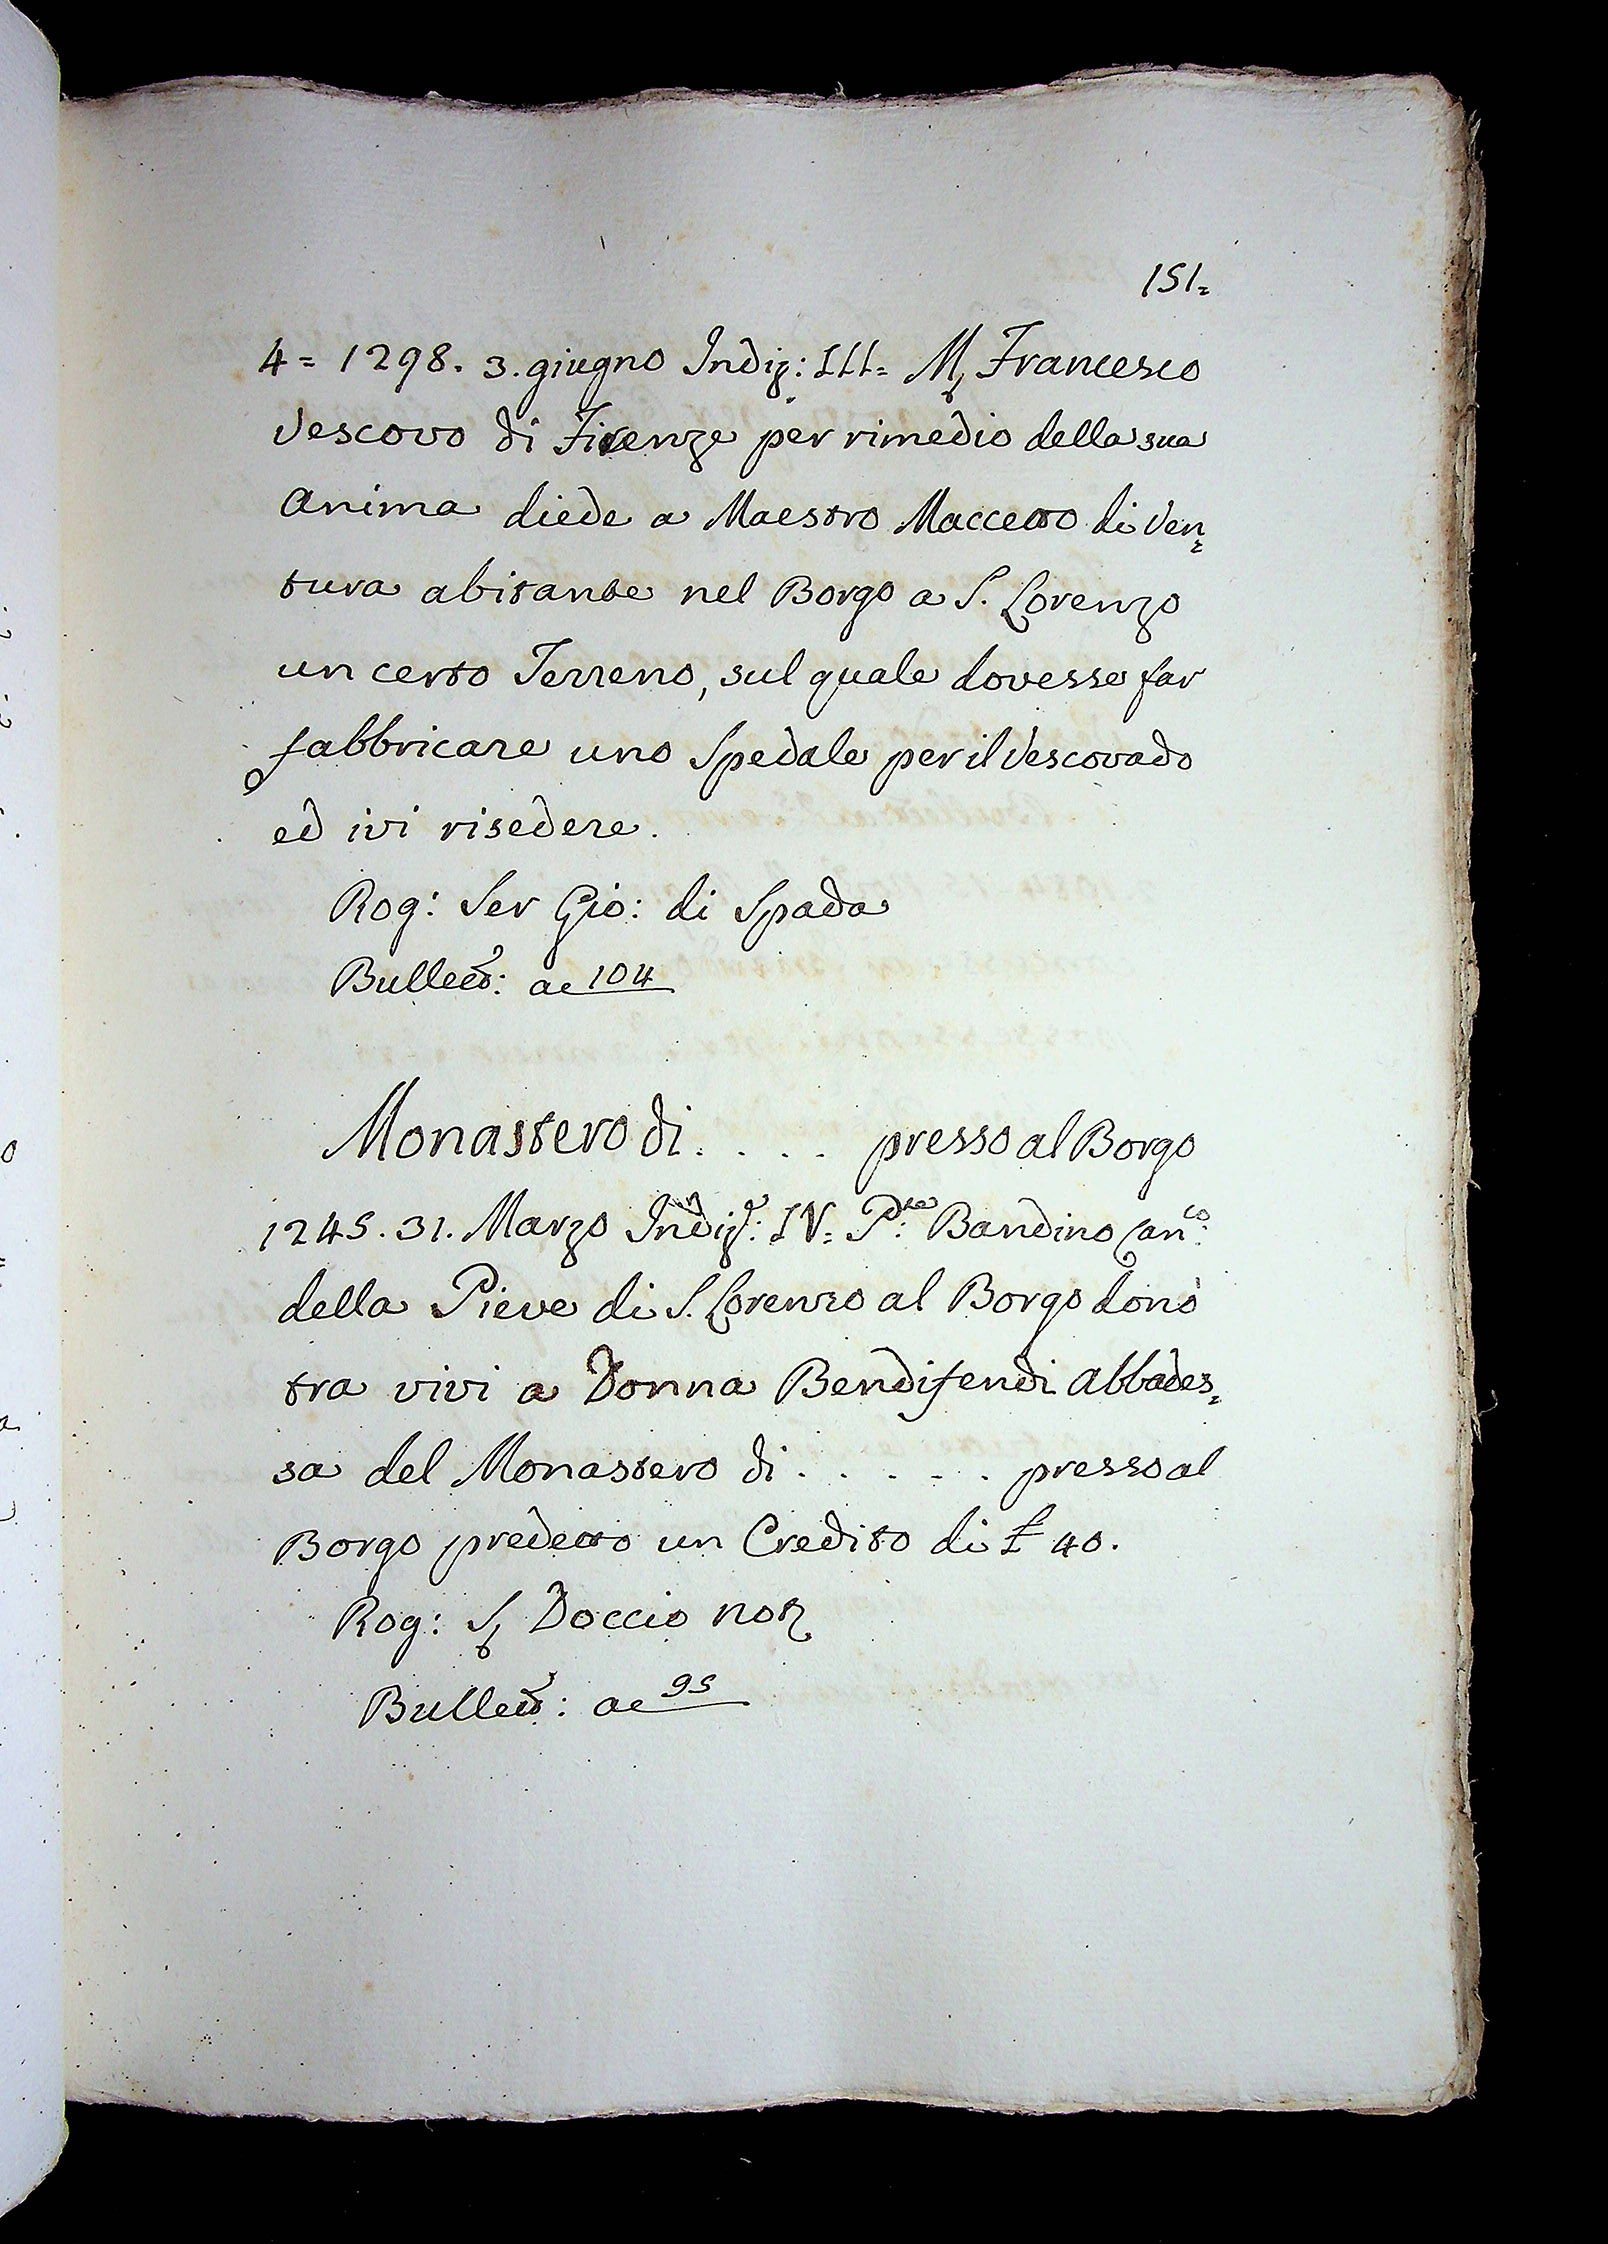 151=
4= 1298. 3. giugno Indiz: III= M. Francesco
Vescovo di Firenze per rimedio della sua
Anima diede a Maestro Maccetto di Ven=
tura abitante nel Borgo a S. Lorenzo
un certo Terreno, sul quale dovesse far
fabbricare uno Spedale per il Vescovado
ed ivi risedere.
Rog: Ser Gio: di Spada
Bullett: ac 104
Monastero di . . . . presso al Borgo
1245. 31. Marzo Indiz: IV= P.te Bandino Can.co
della Pieve di S. Lorenzo al Borgo donò
tra vivi a Donna Bendifendi Abbades=
sa del Monastero di . . . . . presso al
Borgo predetto un Credito di £ 40.
Rog: S. Doccio not.
Bullett: ac 95